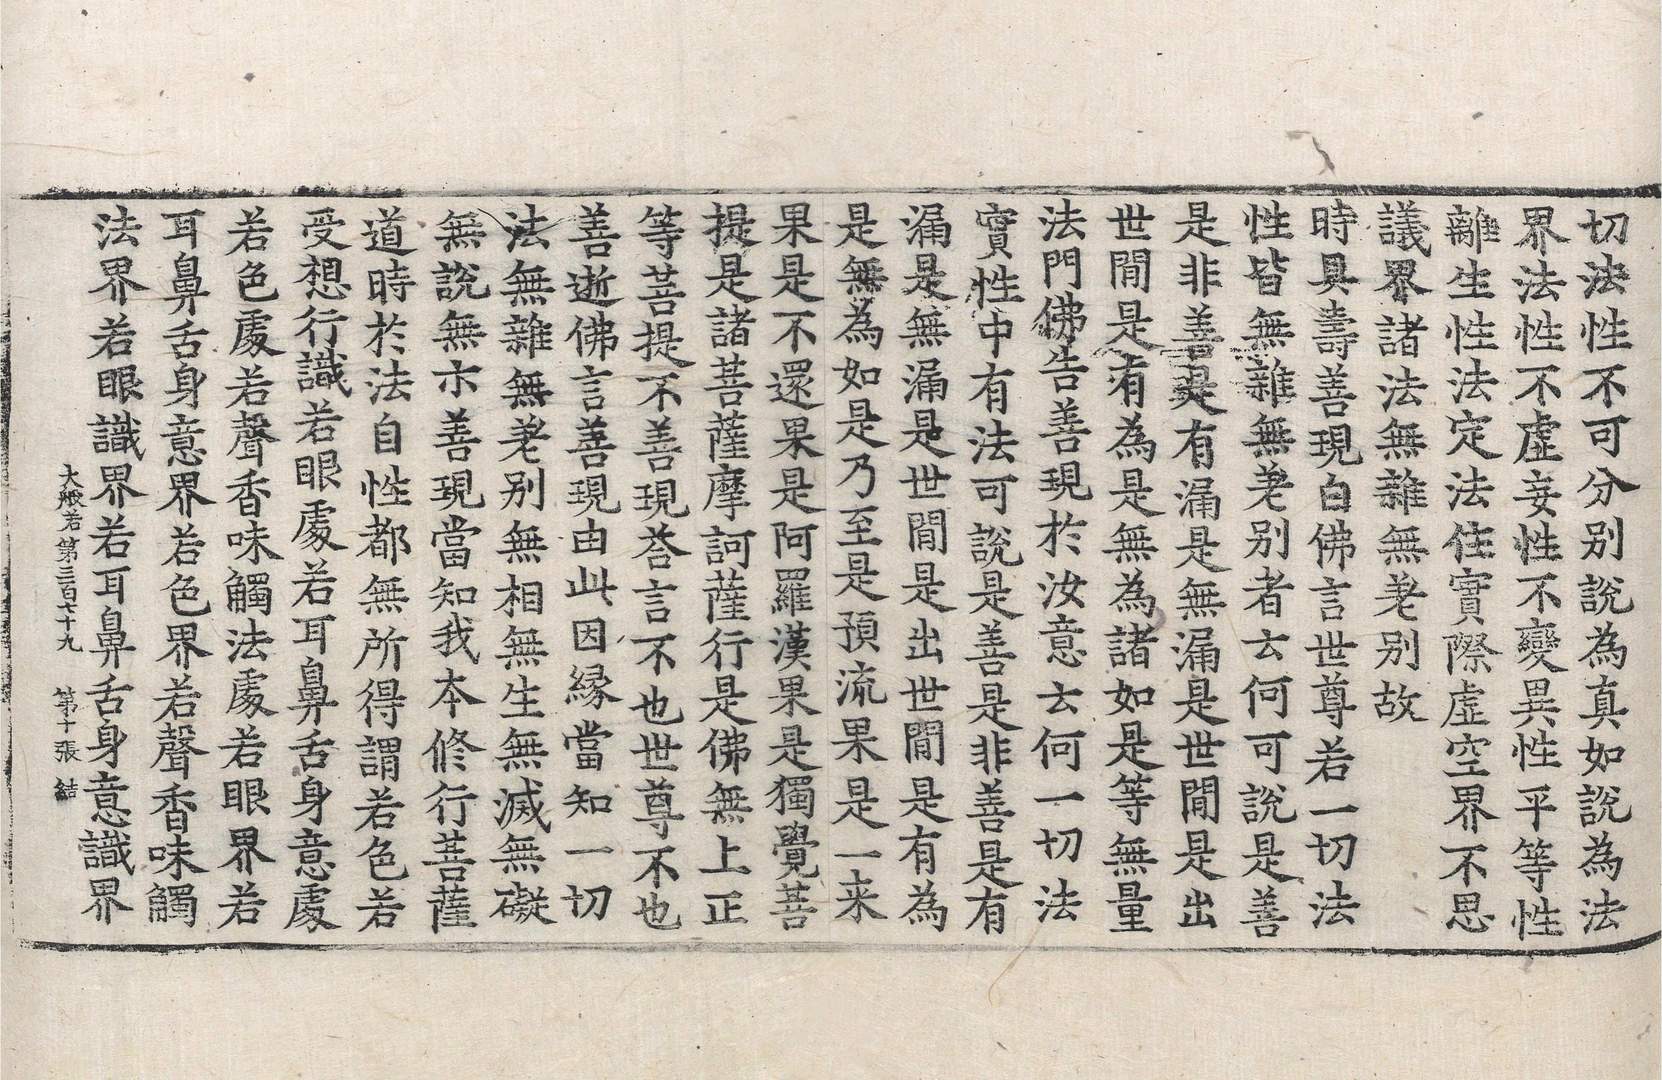 切法性不可分別說為真如說為法
界法性不虛妄性不變異性平等性
離生性法定法住實際虛空界不思
議界諸法無雜無差別故
時具壽善現白佛言世尊若一切法
性皆無雜無差別者云何可說是善
是非善是有漏是無漏是世間是出
世間是有為是無為諸如是等無量
法門佛告善現於汝意云何一切法
實性中有法可說是善是非善是有
漏是無漏是世間是出世間是有為
是無為如是乃至是預流果是一来
果是不還果是阿羅漢果是獨覺菩
提是諸菩薩摩訶薩行是佛無上正
等菩提不善現荅言不也世尊不也
善逝佛言善現由此因縁當知一切
法無雜無差別無相無生無滅無礙
無說無示善現當知我本修行菩薩
道時於法自性都無所得謂若色若
受想行識若眼處若耳鼻舌身意處
若色處若聲香味觸法處若眼界若
耳鼻舌身意界若色界若聲香味觸
法界若眼識界若耳鼻舌身意識界
大般若第三百七十九　第十張　結